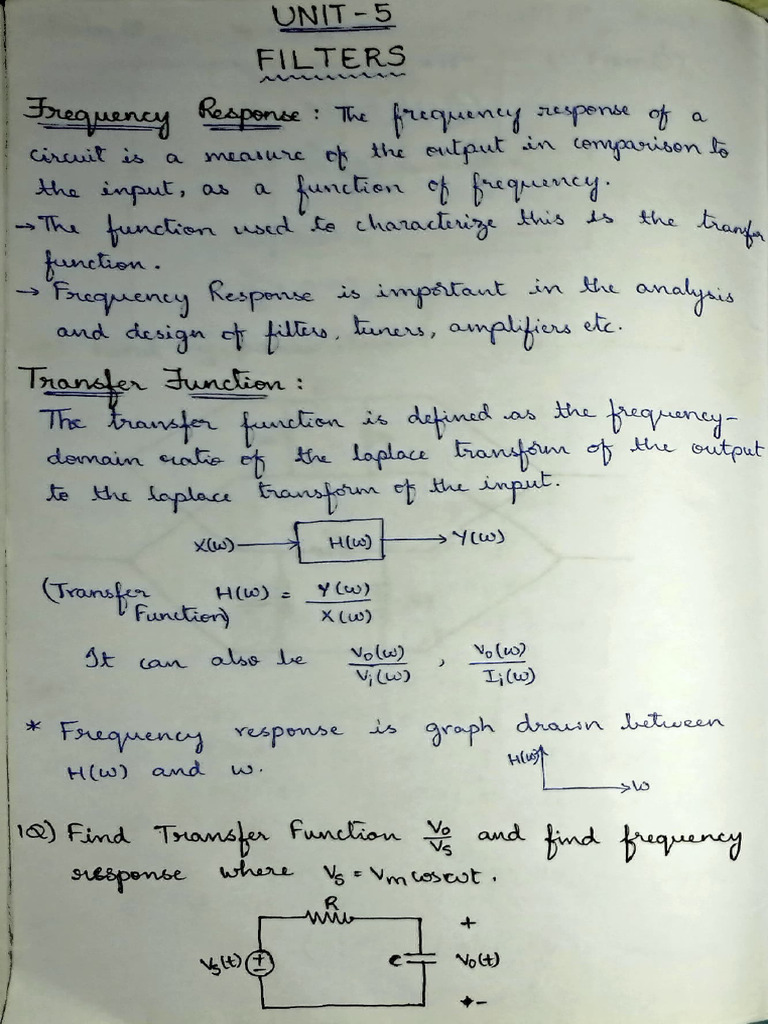 UNIT-5
FILTERS
Frequency Response: The frequency response of a
circuit is a measure of the output in comparison to
the input, as a function of frequency.
→ The function used to characterize this is the transfer
function.
→ Frequency Response is important in the analysis
and design of filters, tuners, amplifiers etc.
Transfer Function:
The transfer function is defined as the frequency-
domain ratio of the laplace transform of the output
to the laplace transform of the input.
X(ω) → H(ω) → Y(ω)
(Transfer Function) H(ω) = Y(ω)/X(ω)
It can also be Vo(ω)/Vi(ω), Vo(ω)/Ii(ω)
* Frequency response is graph drawn between
H(ω) and ω.
H(ω)
ω
1Q) Find Transfer Function Vo/Vs and find frequency
response where Vs = Vm cosωt.
R
+
Vs(t) + − C Vo(t)
-